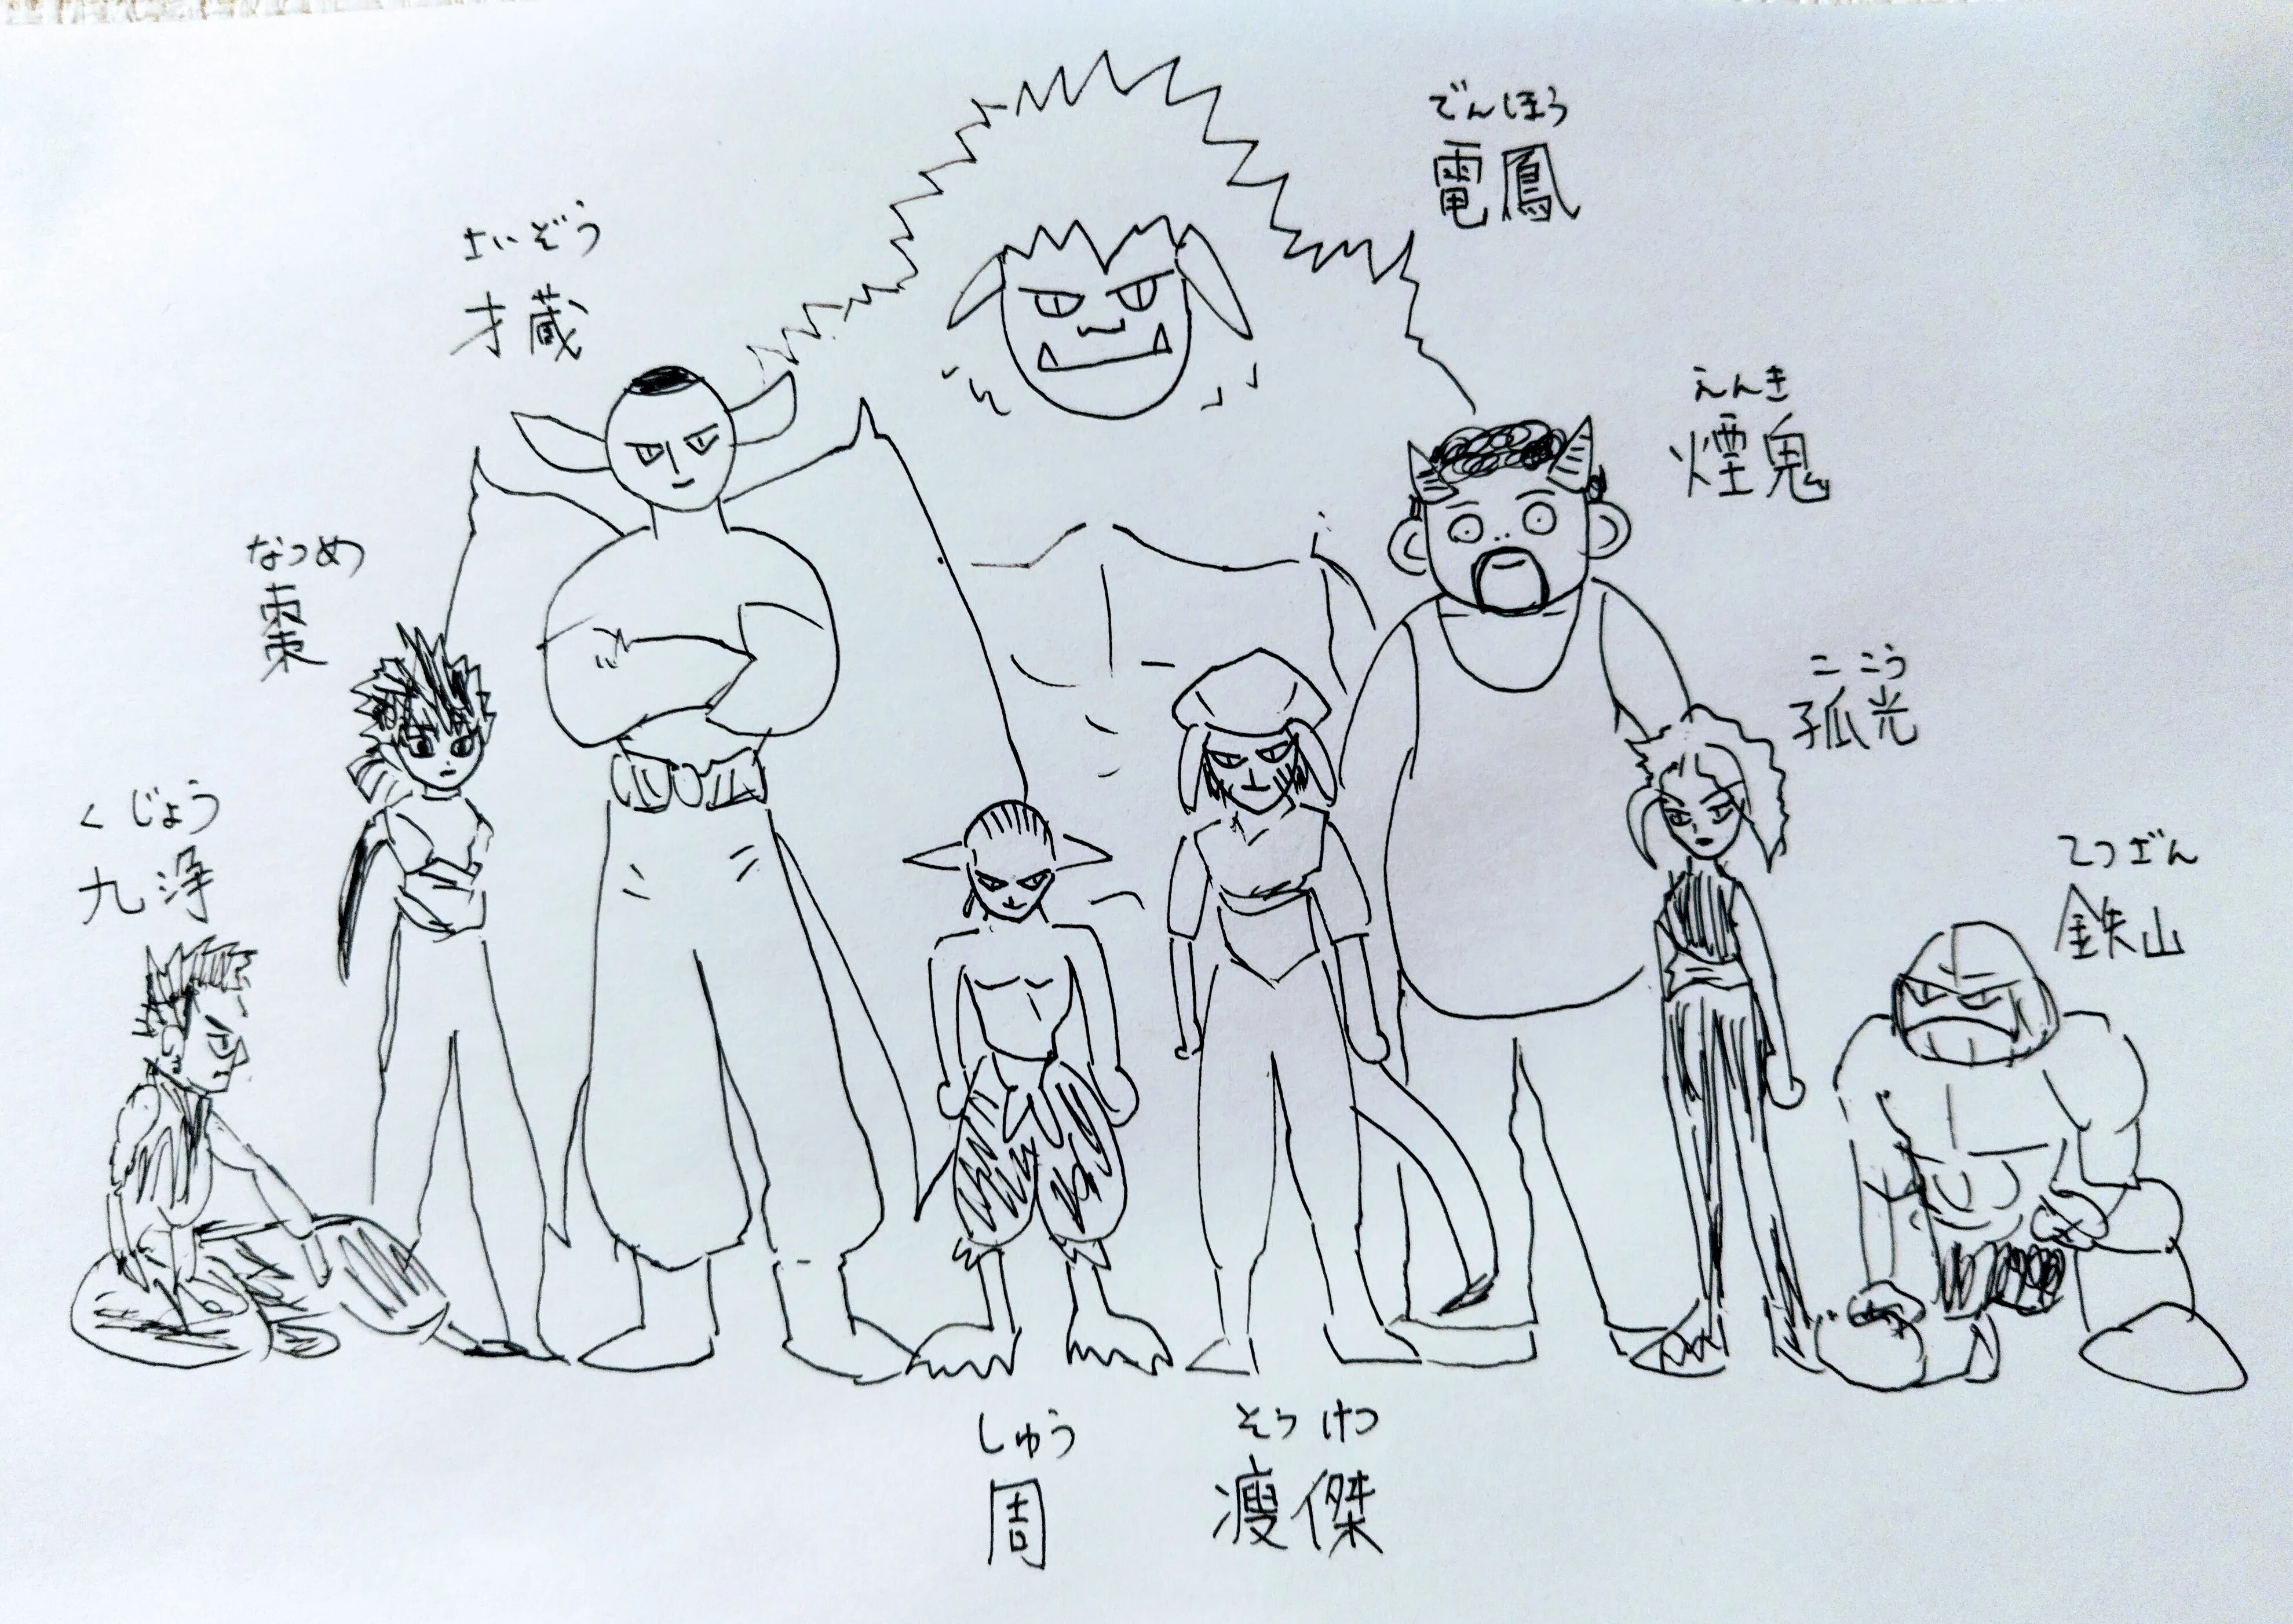 でんほう
電鳳
さいぞう
才蔵
えんき
煙鬼
なつめ
棗
ここう
孤光
くじょう
九浄
てつざん
鉄山
しゅう
周
そうけつ
痩傑